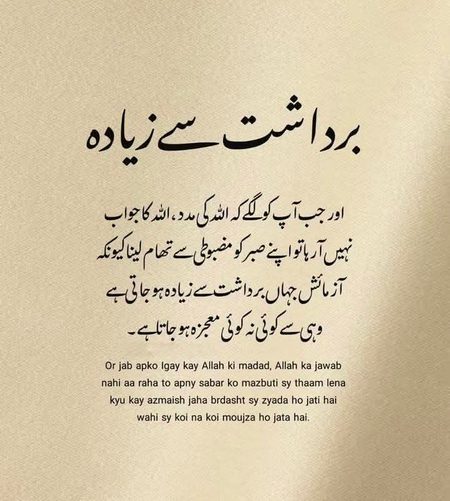 برداشت سے زیادہ
اور جب آپ کو لگے کہ اللہ کی مدد، اللہ کا جواب
نہیں آرہا تو اپنے صبر کو مضبوطی سے تھام لینا کیونکہ
آزمائش جہاں برداشت سے زیادہ ہو جاتی ہے
وہی سے کوئی نہ کوئی معجزہ ہو جاتا ہے۔
Or jab apko lgay kay Allah ki madad, Allah ka jawab
nahi aa raha to apny sabar ko mazbuti sy thaam lena
kyu kay azmaish jaha brdasht sy zyada ho jati hai
wahi sy koi na koi moujza ho jata hai.